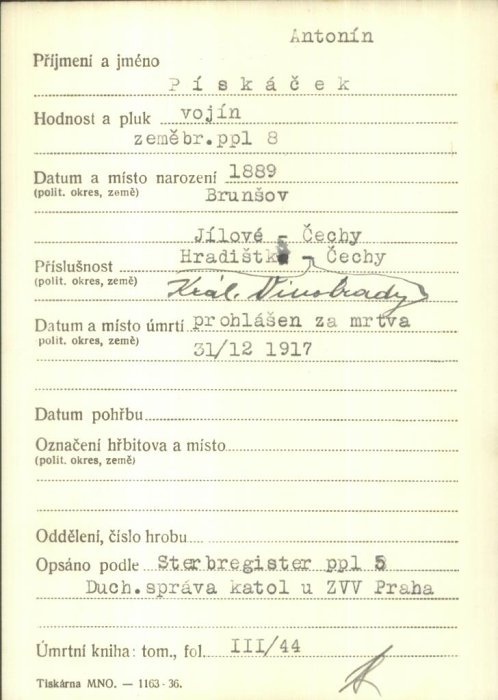 Antonín
Příjmení a jméno
Pískáček
Hodnost a pluk vojín
zeměbr.ppl 8
Datum a místo narození 1889
(polit. okres, země) Brunšov
Jílové - Čechy
Příslušnost Hradištk - Čechy
(polit. okres, země) Král. Vinohrady
Datum a místo úmrtí prohlášen za mrtva
(polit. okres, země) 31/12 1917
Datum pohřbu
Označení hřbitova a místo
(polit. okres, země)
Oddělení, číslo hrobu
Opsáno podle Sterbregister ppl 5
Duch.správa katol u ZVV Praha
Úmrtní kniha: tom., fol. III/44
Tiskárna MNO. — 1163 - 36.